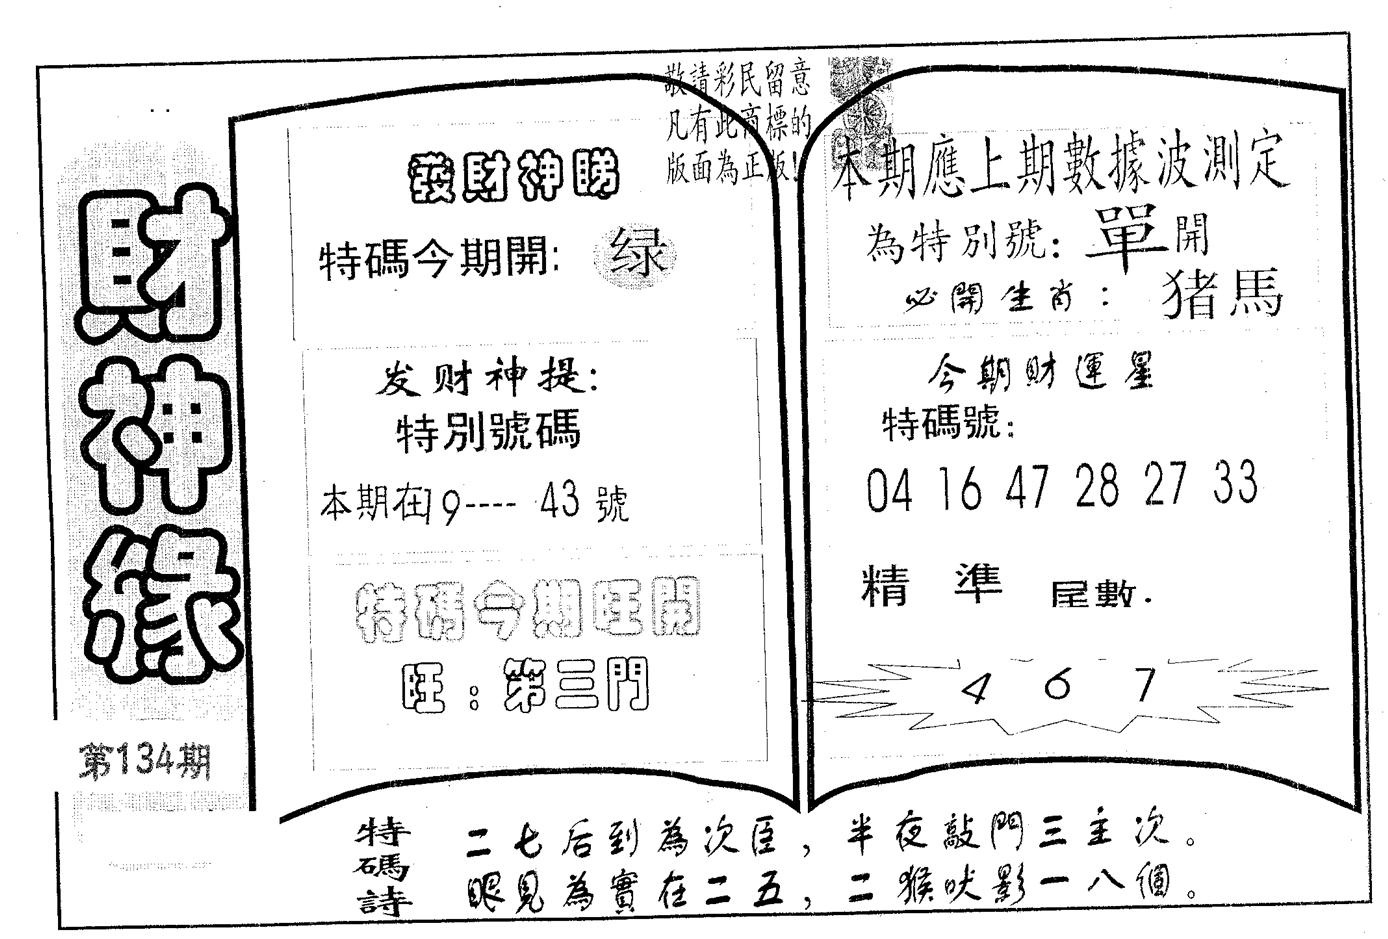 財神緣
第134期
敬請彩民留意
凡有此商標的
版面為正版!
發財神睇
特碼今期開: 绿
发财神提:
特別號碼
本期在19---- 43 號
特碼今期旺開
旺: 第三門
本期應上期數據波測定
為特別號: 單開
必開生肖: 猪馬
今期財運星
特碼號:
04 16 47 28 27 33
精 準 尾數.
4 6 7
特碼詩
二七后到為次臣, 半夜敲門三主次。
眼見為實在二五, 二猴吠影一八個。